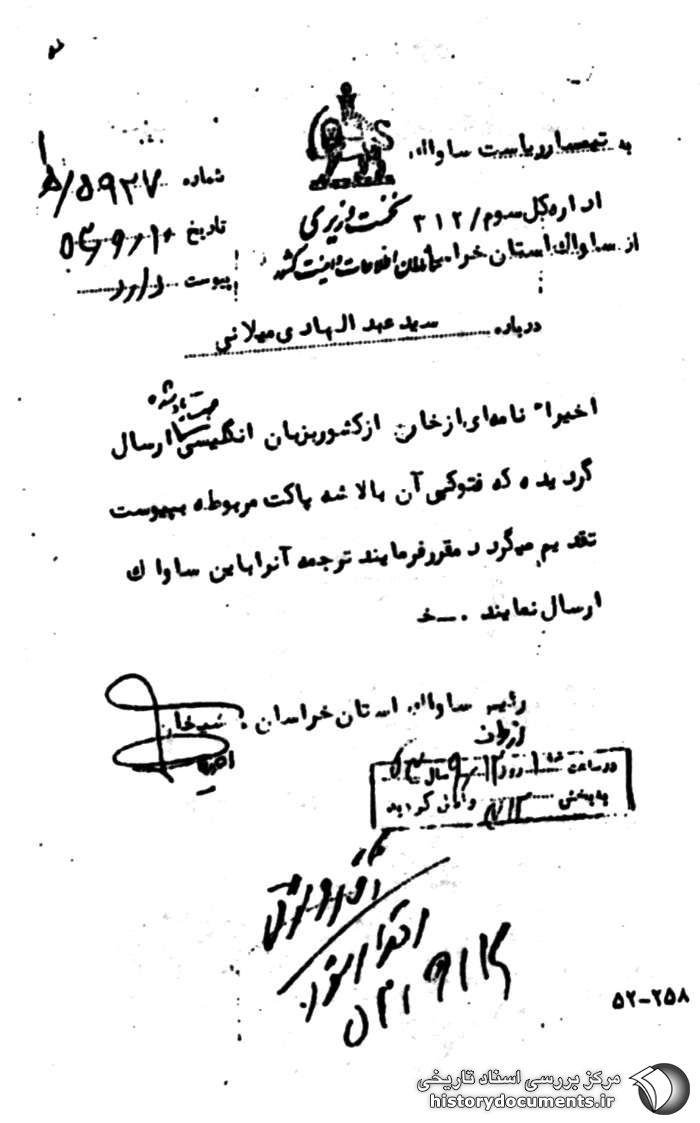 به تیمسار ریاست ساواک
اداره کل سوم / ۳۱۲
نخست وزیری
از ساواک استان خرا
سازمان اطلاعات و امنیت کشور
شماره ۵۹۲۷/
تاریخ
پیوست دارد
درباره سید عبدالهادی میلانی
اخیراً نامه‌ای از خارج از کشور بزبان انگلیسی جهت یاد شده ارسال
گردیده که فتوکپی آن بالاشه پاکت مربوطه بپیوست
تقدیم میگردد مقرر فرمایند ترجمه آنرا باین ساواک
ارسال نمایند . ـ خ
رئیس ساواک استان خراسان . شیخان
از طرف
در ساعت روز سال
به بخش ۳۱۲ واصل گردید
اقدام شود
۵۳/۹/۱۳
۵۲-۲۵۸
مرکز بررسی اسناد تاریخی
historydocuments.ir